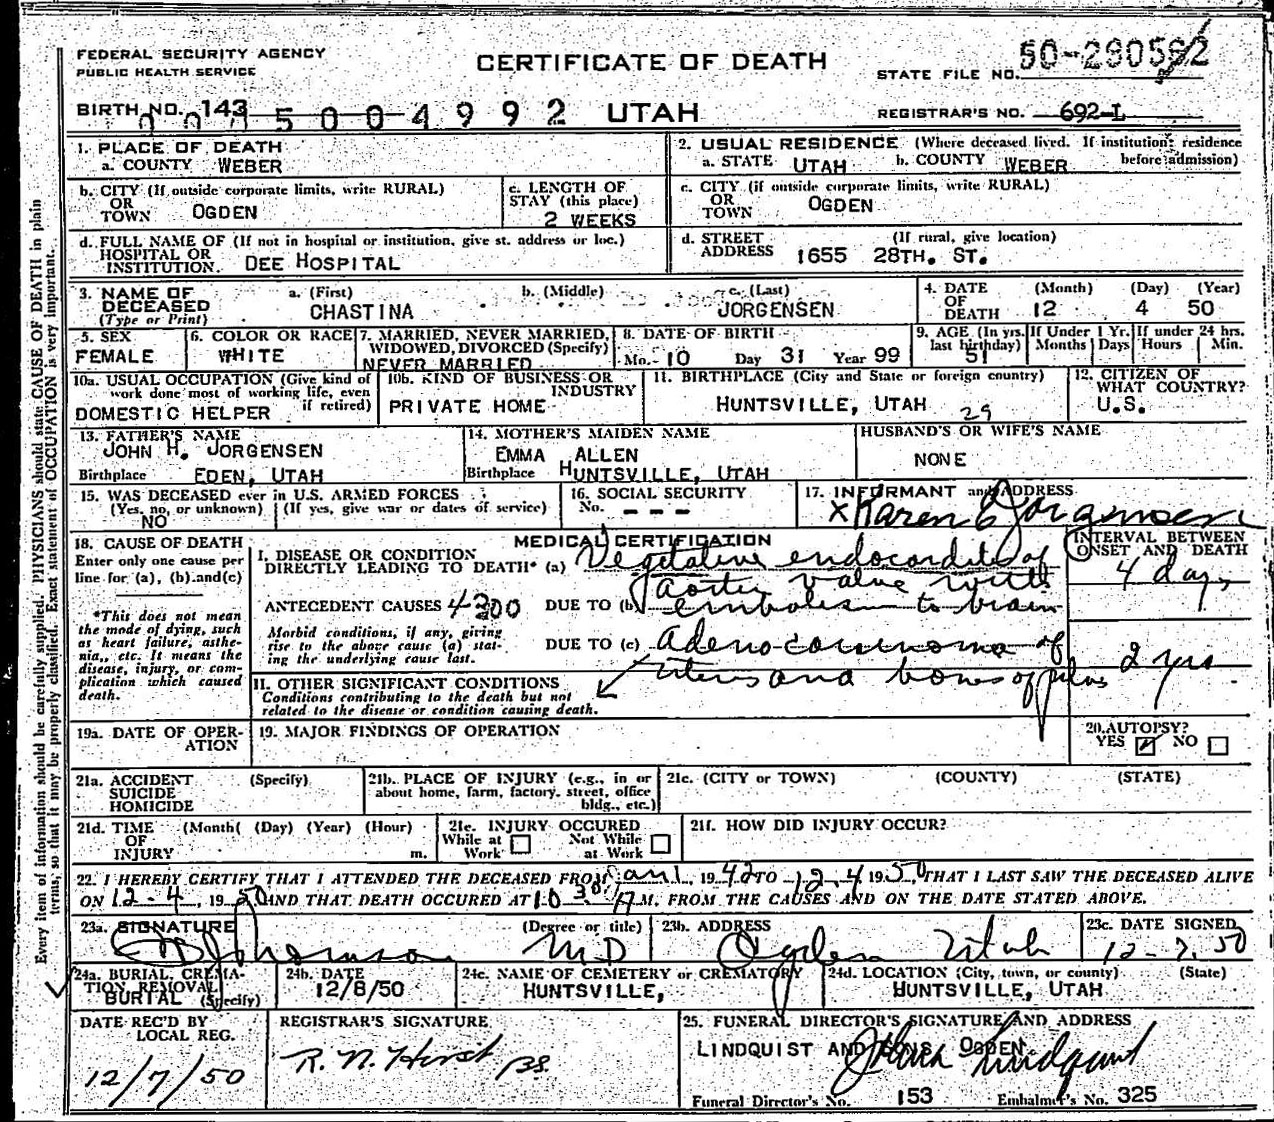 FEDERAL SECURITY AGENCY
PUBLIC HEALTH SERVICE
CERTIFICATE OF DEATH
UTAH
STATE FILE NO. 50-2905
BIRTH NO. 143
5004992
REGISTRAR'S NO. 692-L
Every item of information should be carefully supplied. PHYSICIANS should state CAUSE OF DEATH in plain
terms, so that it may be properly classified. Exact statement of OCCUPATION is very important.
1. PLACE OF DEATH
a. COUNTY WEBER
2. USUAL RESIDENCE (Where deceased lived. If institution: residence before admission)
a. STATE UTAH b. COUNTY WEBER
b. CITY (If outside corporate limits, write RURAL)
OR TOWN OGDEN
c. LENGTH OF STAY (this place)
2 WEEKS
c. CITY (if outside corporate limits, write RURAL)
OR TOWN OGDEN
d. FULL NAME OF (If not in hospital or institution, give st. address or loc.)
HOSPITAL OR INSTITUTION. DEE HOSPITAL
d. STREET ADDRESS (If rural, give location)
1655 28TH. ST.
3. NAME OF DECEASED (Type or Print)
a. (First) b. (Middle) c. (Last)
CHASTINA JORGENSEN
4. DATE OF DEATH (Month) (Day) (Year)
12 4 50
5. SEX
FEMALE
6. COLOR OR RACE
WHITE
7. MARRIED, NEVER MARRIED, WIDOWED, DIVORCED (Specify)
NEVER MARRIED
8. DATE OF BIRTH
Mo. 10 Day 31 Year 99
9. AGE (In yrs. last birthday) 51
If Under 1 Yr. Months Days
If under 24 hrs. Hours Min.
10a. USUAL OCCUPATION (Give kind of work done most of working life, even if retired)
DOMESTIC HELPER
10b. KIND OF BUSINESS OR INDUSTRY
PRIVATE HOME
11. BIRTHPLACE (City and State or foreign country)
HUNTSVILLE, UTAH 29
12. CITIZEN OF WHAT COUNTRY?
U.S.
13. FATHER'S NAME
JOHN H. JORGENSEN
Birthplace EDEN, UTAH
14. MOTHER'S MAIDEN NAME
EMMA ALLEN
Birthplace HUNTSVILLE, UTAH
HUSBAND'S OR WIFE'S NAME
NONE
15. WAS DECEASED ever in U.S. ARMED FORCES
(Yes, no, or unknown) (If yes, give war or dates of service)
NO
16. SOCIAL SECURITY
No. - - -
17. INFORMANT and ADDRESS
x Karen E Jorgensen
18. CAUSE OF DEATH
Enter only one cause per line for (a), (b) and (c)
*This does not mean the mode of dying, such as heart failure, asthenia, etc. It means the disease, injury, or complication which caused death.
MEDICAL CERTIFICATION
INTERVAL BETWEEN ONSET AND DEATH
I. DISEASE OR CONDITION DIRECTLY LEADING TO DEATH* (a) Vegetative endocarditis of
aortic valve with
4 days
ANTECEDENT CAUSES 4300 DUE TO (b) embolism to brain
Morbid conditions, if any, giving rise to the above cause (a) stating the underlying cause last.
DUE TO (c) adenocarcinoma of
uterus and bones of pelvis 2 yrs.
II. OTHER SIGNIFICANT CONDITIONS
Conditions contributing to the death but not related to the disease or condition causing death.
19a. DATE OF OPERATION
19. MAJOR FINDINGS OF OPERATION
20. AUTOPSY?
YES ☑ NO ☐
21a. ACCIDENT SUICIDE HOMICIDE (Specify)
21b. PLACE OF INJURY (e.g., in or about home, farm, factory, street, office bldg., etc.)
21c. (CITY or TOWN) (COUNTY) (STATE)
21d. TIME OF INJURY (Month( (Day) (Year) (Hour) m.
21e. INJURY OCCURED
While at Work ☐ Not While at Work ☐
21f. HOW DID INJURY OCCUR?
22. I HEREBY CERTIFY THAT I ATTENDED THE DECEASED FROM Jan 1, 1942 TO 12-4 1950, THAT I LAST SAW THE DECEASED ALIVE
ON 12-4, 1950 AND THAT DEATH OCCURED AT 10 30 A M. FROM THE CAUSES AND ON THE DATE STATED ABOVE.
23a. SIGNATURE (Degree or title)
M.D
23b. ADDRESS
Ogden Utah
23c. DATE SIGNED
12-7-50
24a. BURIAL, CREMATION, REMOVAL (Specify)
BURIAL
24b. DATE
12/8/50
24c. NAME OF CEMETERY or CREMATORY
HUNTSVILLE,
24d. LOCATION (City, town, or county) (State)
HUNTSVILLE, UTAH
DATE REC'D BY LOCAL REG.
12/7/50
REGISTRAR'S SIGNATURE
R. N. Hirst
25. FUNERAL DIRECTOR'S SIGNATURE AND ADDRESS
LINDQUIST AND SONS OGDEN
Lindquist
Funeral Director's No. 153 Embalmer's No. 325